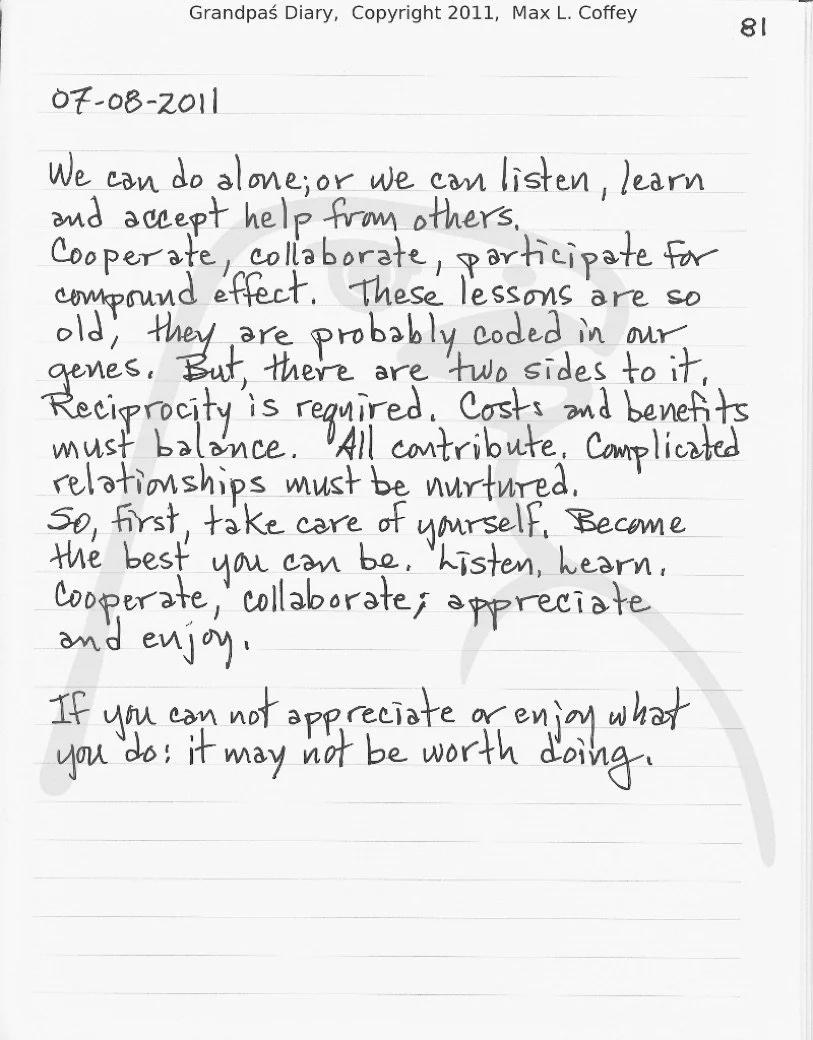 Grandpaś Diary, Copyright 2011, Max L. Coffey
81
07-08-2011
We can do alone; or we can listen, learn
and accept help from others.
Cooperate, collaborate, participate for
compound effect. These lessons are so
old, they are probably coded in our
genes. But, there are two sides to it.
Reciprocity is required. Costs and benefits
must balance. All contribute. Complicated
relationships must be nurtured.
So, first, take care of yourself. Become
the best you can be. Listen, Learn.
Cooperate, collaborate; appreciate
and enjoy.
If you can not appreciate or enjoy what
you do: it may not be worth doing.